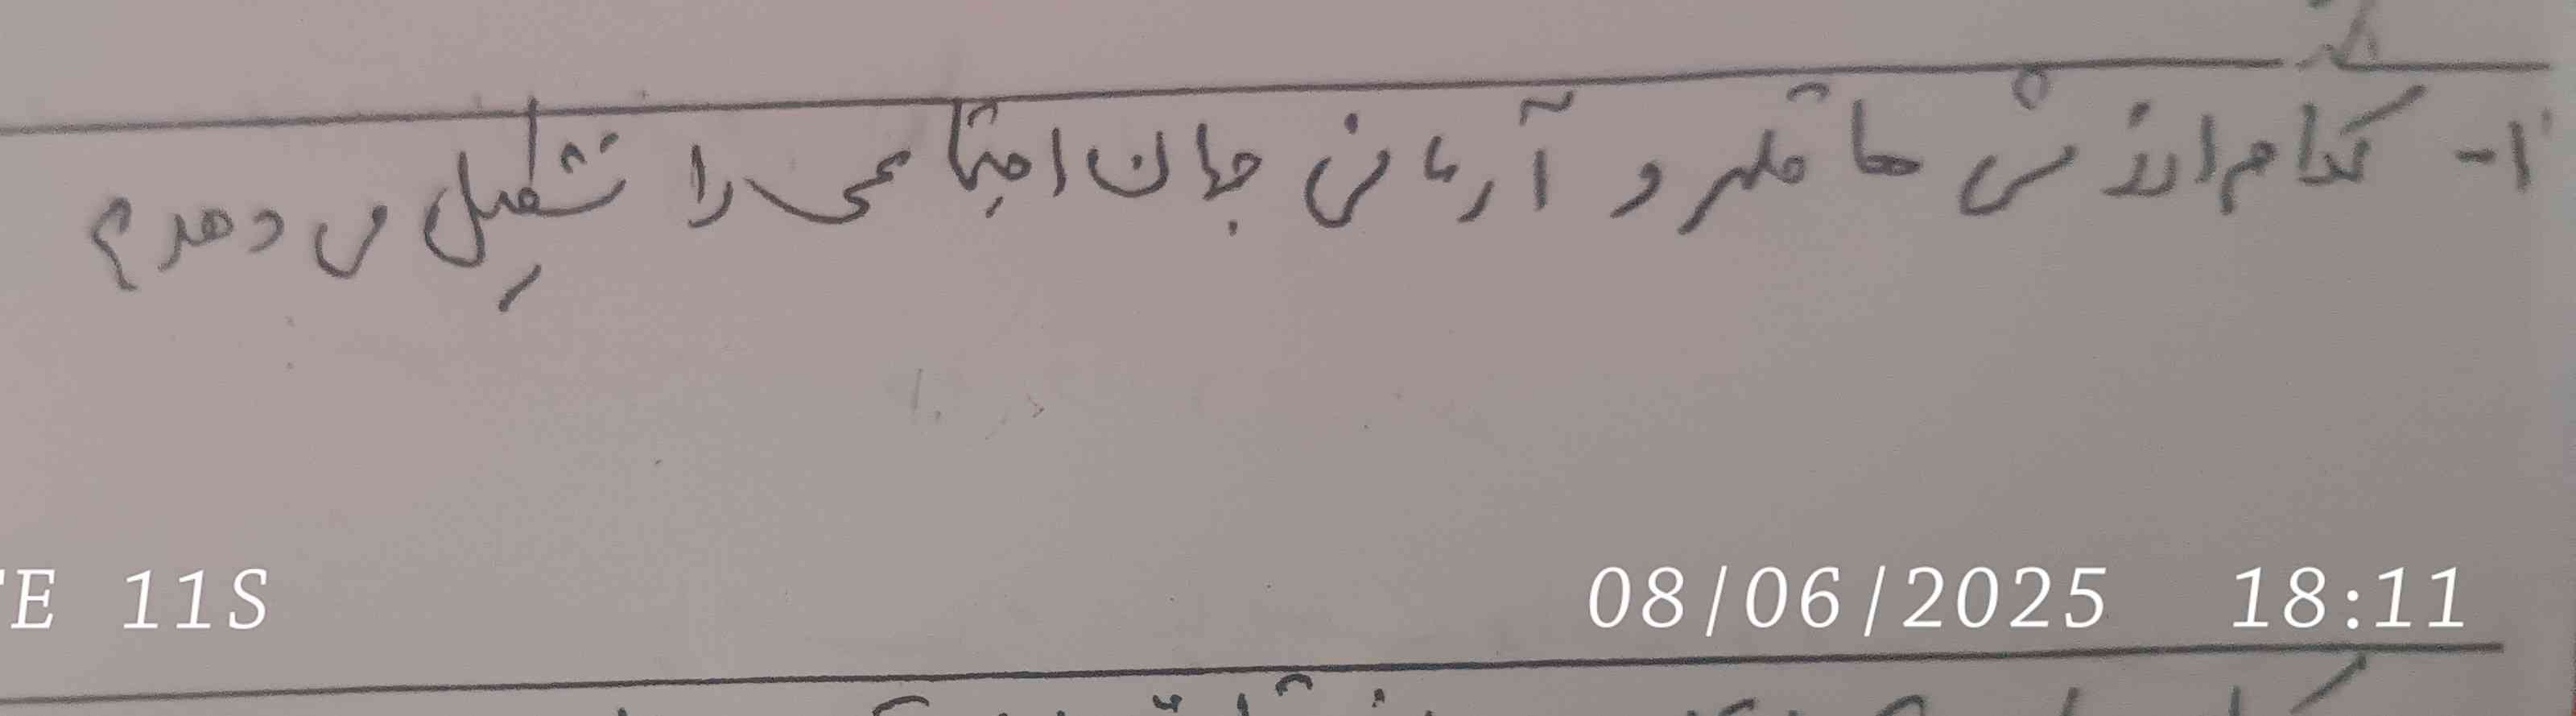 ۱- کدام ارزش ها قلمرو آرمانی جهان اجتماعی را تشکیل می دهد؟
TE 11S 08/06/2025 18:11